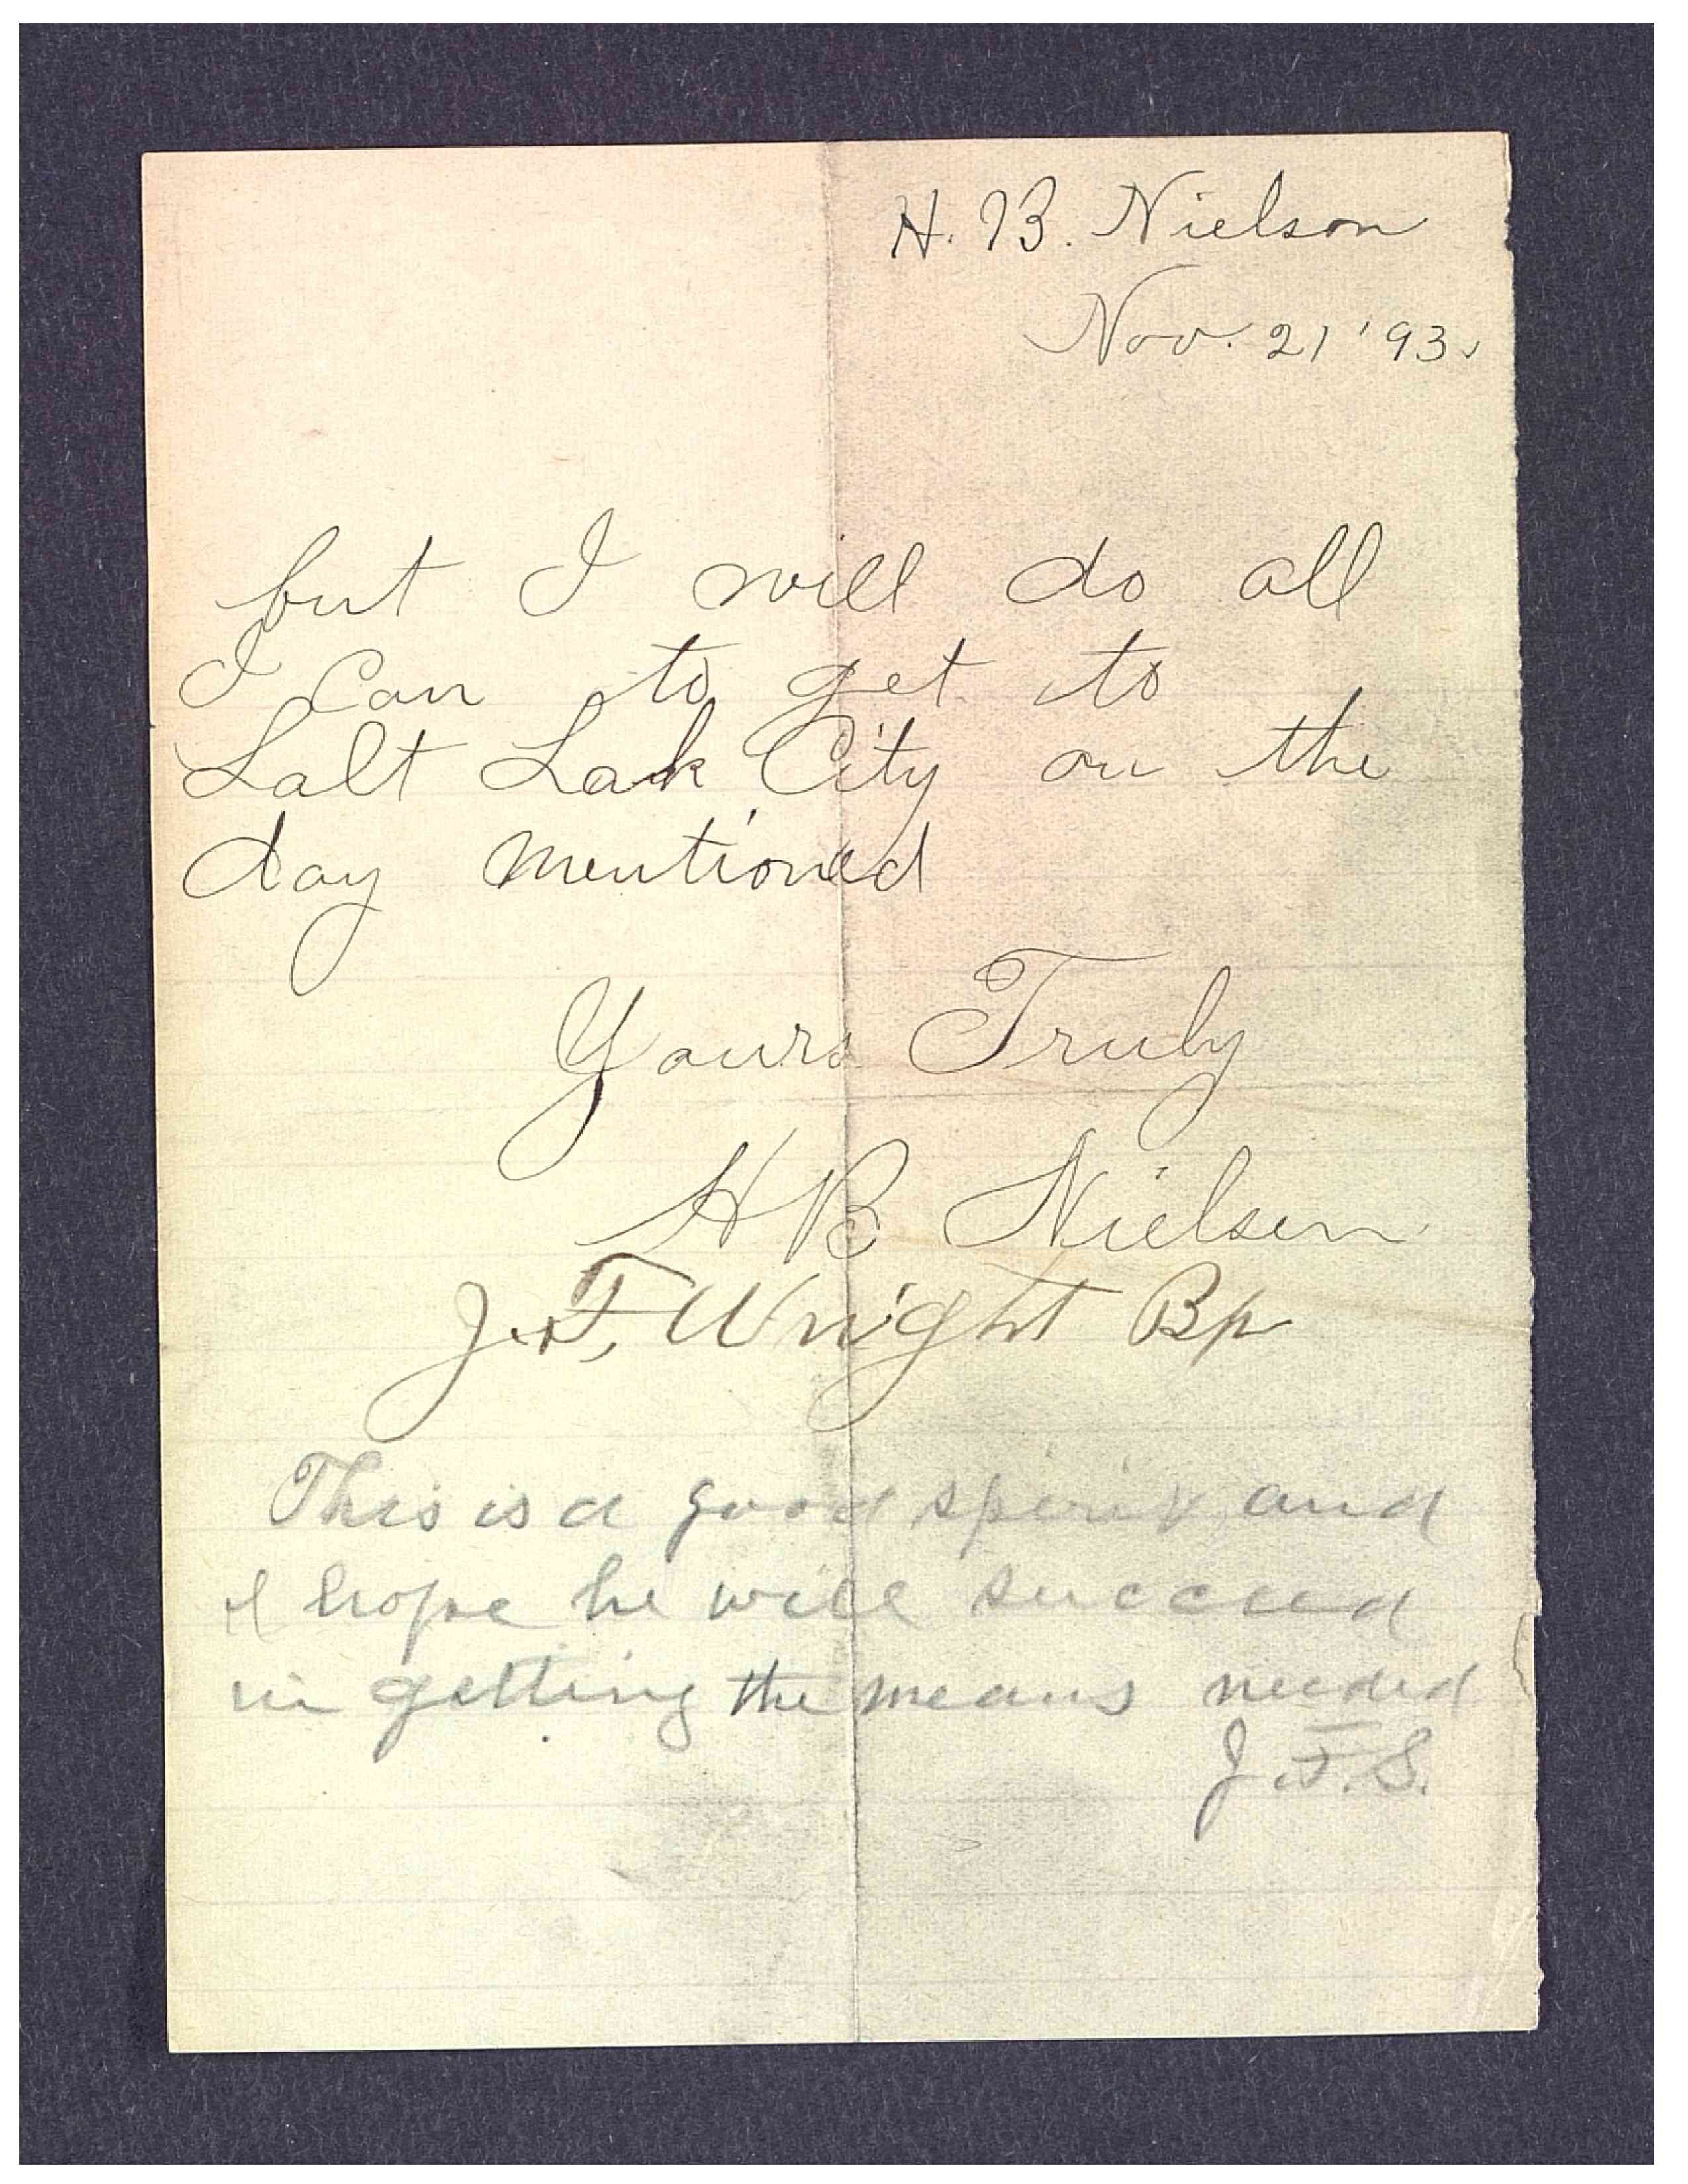 H. B. Nielson
Nov. 21 '93.
but I will do all
I Can to get to
Salt Lak City on the
day mentioned
Yours Truly
H B Nielsen
J. F. Wright Bp
This is a good spirit and
I hope he will succeed
in getting the means needed
J. F. S.